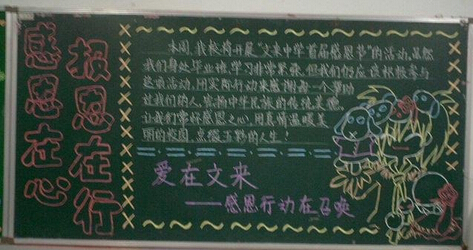 感恩在心
报恩在行
本周,我校将开展“文来中学首届感恩节”的活动,虽然
我们身处毕业班,学习非常紧张,但我们仍应该积极参与
这项活动,用实际行动来感谢每一个帮助
过我们的人,弘扬中华民族的传统美德。
让我们常怀感恩之心,用真情温暖美
丽的校园,点缀玉野的人生!
爱在文来
——感恩行动在召唤